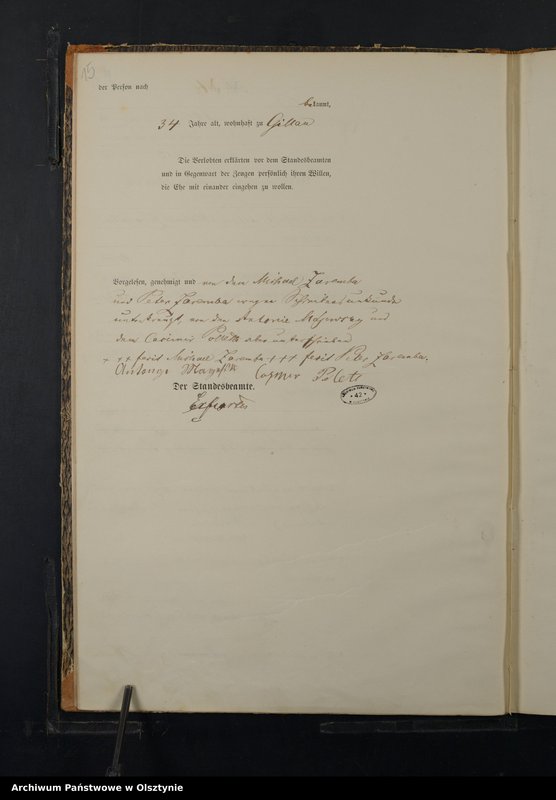 15
der Person nach
bekannt,
34 Jahre alt, wohnhaft zu Gillau
Die Verlobten erklärten vor dem Standesbeamten
und in Gegenwart der Zeugen persönlich ihren Willen,
die Ehe mit einander eingehen zu wollen.
Vorgelesen, genehmigt und von dem Michael Zaremba
und Peter Zaremba wegen Schreibensunkunde
unterkreuzt, von den Antonie und
dem Casimir aber unterschrieben
+ ++ fecit Michael Zaremba +++ fecit Peter Zaremba.
Der Standesbeamte.
42
Archiwum Państwowe w Olsztynie